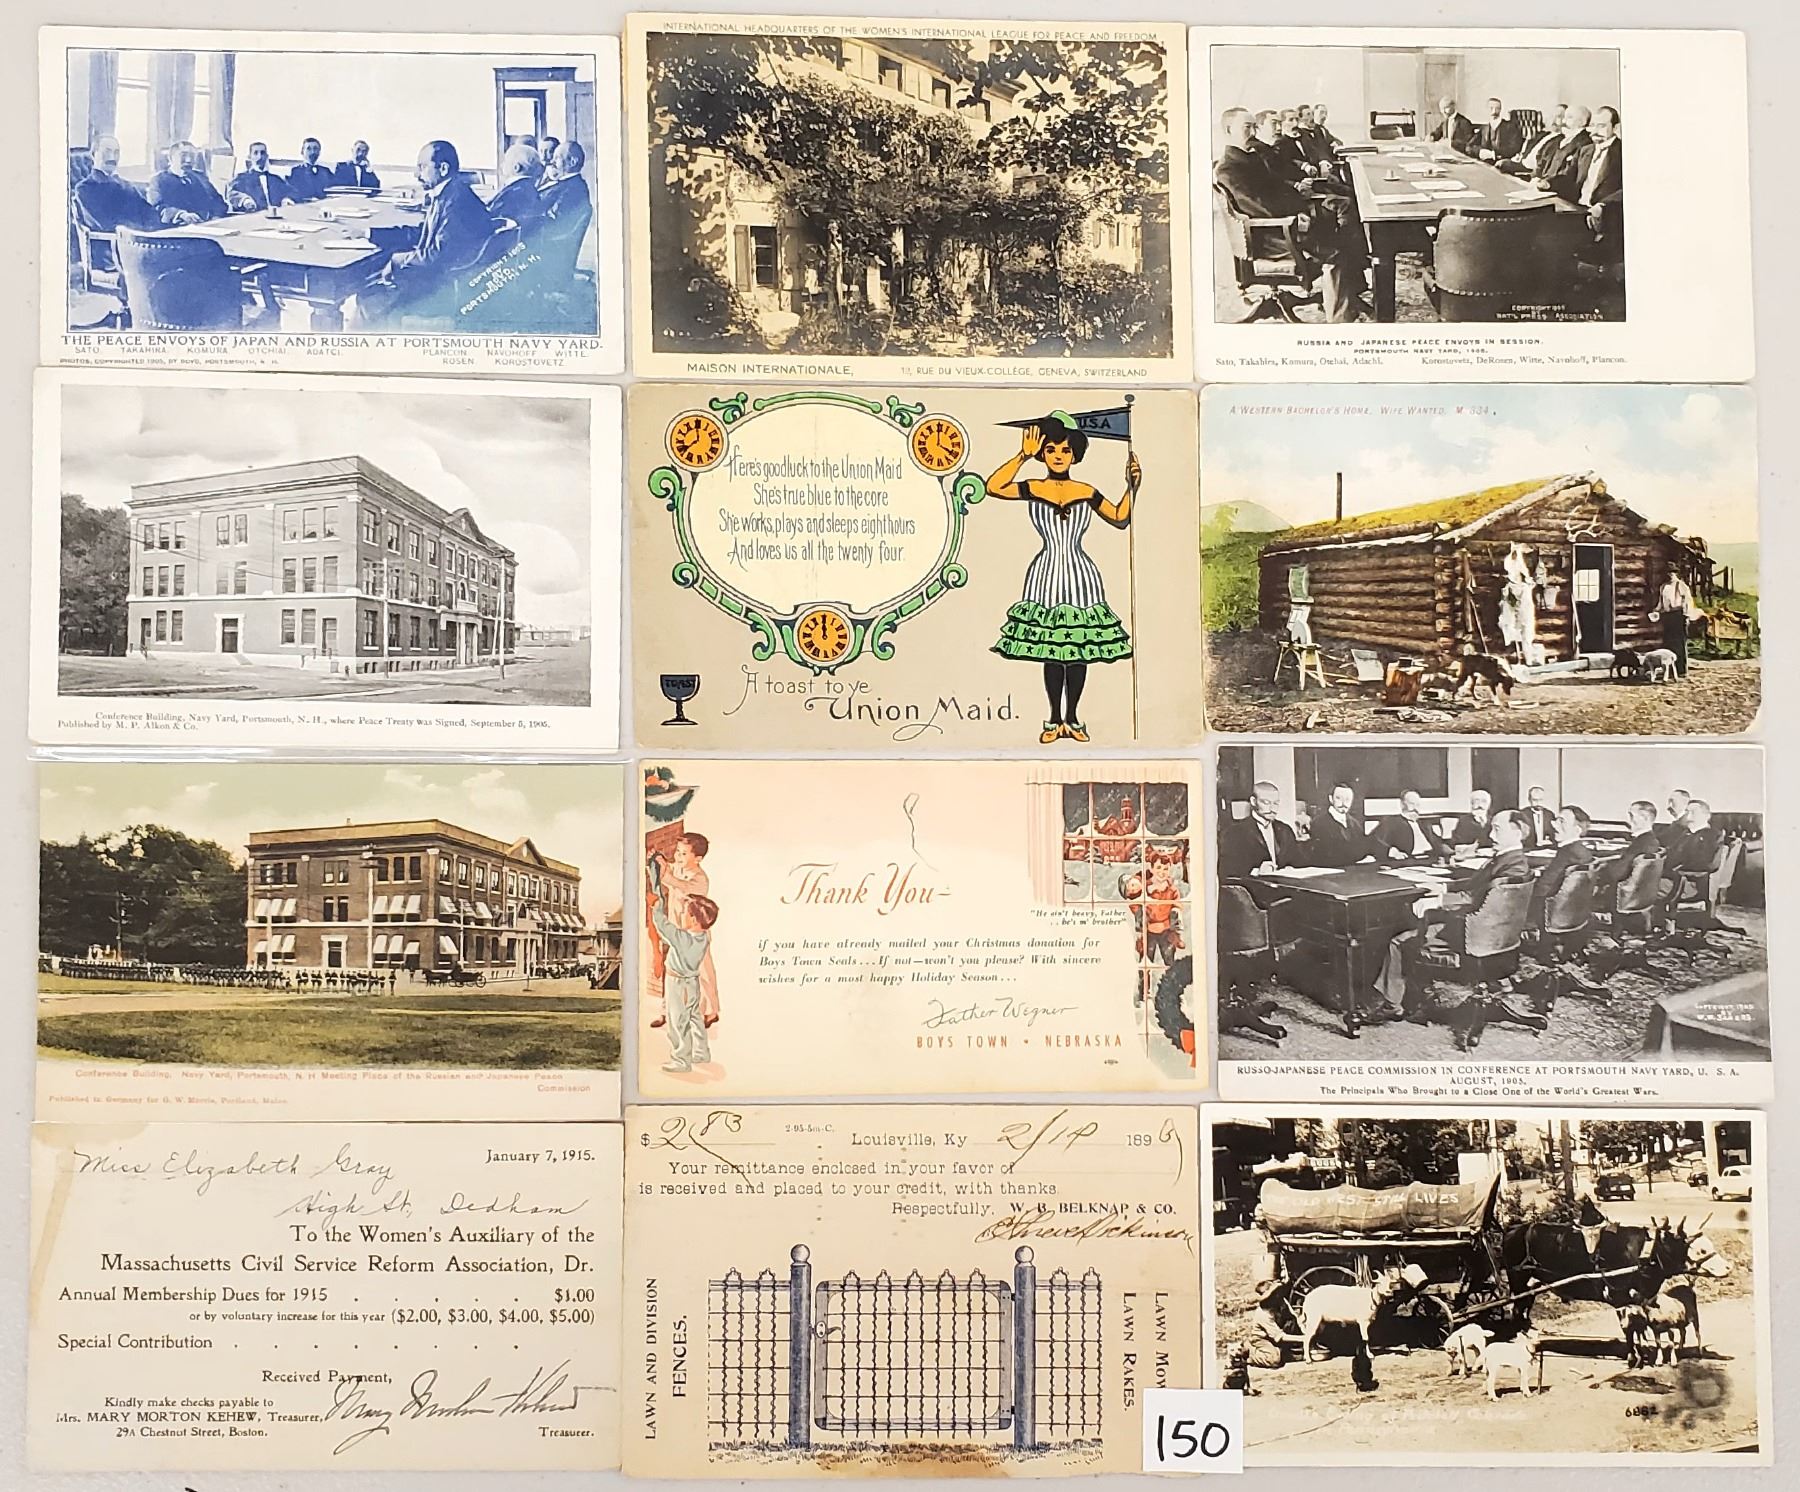 COPYRIGHT 1905
BY
BOYD,
PORTSMOUTH, N. H.
THE PEACE ENVOYS OF JAPAN AND RUSSIA AT PORTSMOUTH NAVY YARD.
SATO, TAKAHIRA, KOMURA, OTCHIAI, ADATCI. PLANCON NAVOHOFF WITTE
ROSEN KOROSTOVETZ
PHOTOS, COPYRIGHTED 1905, BY BOYD, PORTSMOUTH, N. H.
INTERNATIONAL HEADQUARTERS OF THE WOMEN'S INTERNATIONAL LEAGUE FOR PEACE AND FREEDOM
MAISON INTERNATIONALE, 12, RUE DU VIEUX-COLLÈGE, GENEVA, SWITZERLAND
COPYRIGHT 1905
NAT'L PRESS ASSOCIATION
RUSSIA AND JAPANESE PEACE ENVOYS IN SESSION.
PORTSMOUTH NAVY YARD, 1905.
Sato, Takahira, Komura, Otchai, Adachi. Korostovetz, DeRosen, Witte, Navohoff, Plancon.
Conference Building, Navy Yard, Portsmouth, N. H., where Peace Treaty was Signed, September 5, 1905.
Published by M. P. Alkon & Co.
Here's good luck to the Union Maid
She's true blue to the core
She works, plays and sleeps eight hours
And loves us all the twenty four.
U.S.A
TOAST
A toast to ye
Union Maid.
A WESTERN BACHELOR'S HOME. WIFE WANTED. M. 334.
Conference Building, Navy Yard, Portsmouth, N. H. Meeting Place of the Russian and Japanese Peace
Commission
Published in Germany for G. W. Morris, Portland, Maine.
Thank You—
"He ain't heavy, Father
. . he's m' brother"
if you have already mailed your Christmas donation for
Boys Town Seals... If not—won't you please? With sincere
wishes for a most happy Holiday Season...
Father Wegner
BOYS TOWN • NEBRASKA
COPYRIGHT 1905
RUSSO-JAPANESE PEACE COMMISSION IN CONFERENCE AT PORTSMOUTH NAVY YARD, U. S. A.
AUGUST, 1905.
The Principals Who Brought to a Close One of the World's Greatest Wars.
January 7, 1915.
Miss Elizabeth Gray
High St, Dedham
To the Women's Auxiliary of the
Massachusetts Civil Service Reform Association, Dr.
Annual Membership Dues for 1915 . . . . . $1.00
or by voluntary increase for this year ($2.00, $3.00, $4.00, $5.00)
Special Contribution . . . . . . . .
Received Payment,
Kindly make checks payable to
Mrs. MARY MORTON KEHEW, Treasurer,
29A Chestnut Street, Boston.
Mary Morton Kehew
Treasurer.
$ 2 83
2-95-5m-C.
Louisville, Ky 2/14 1896
Your remittance enclosed in your favor of
is received and placed to your credit, with thanks.
Respectfully, W. B. BELKNAP & CO.
LAWN AND DIVISION
FENCES.
LAWN MOW
LAWN RAKES.
150
THE OLD WEST STILL LIVES
6882